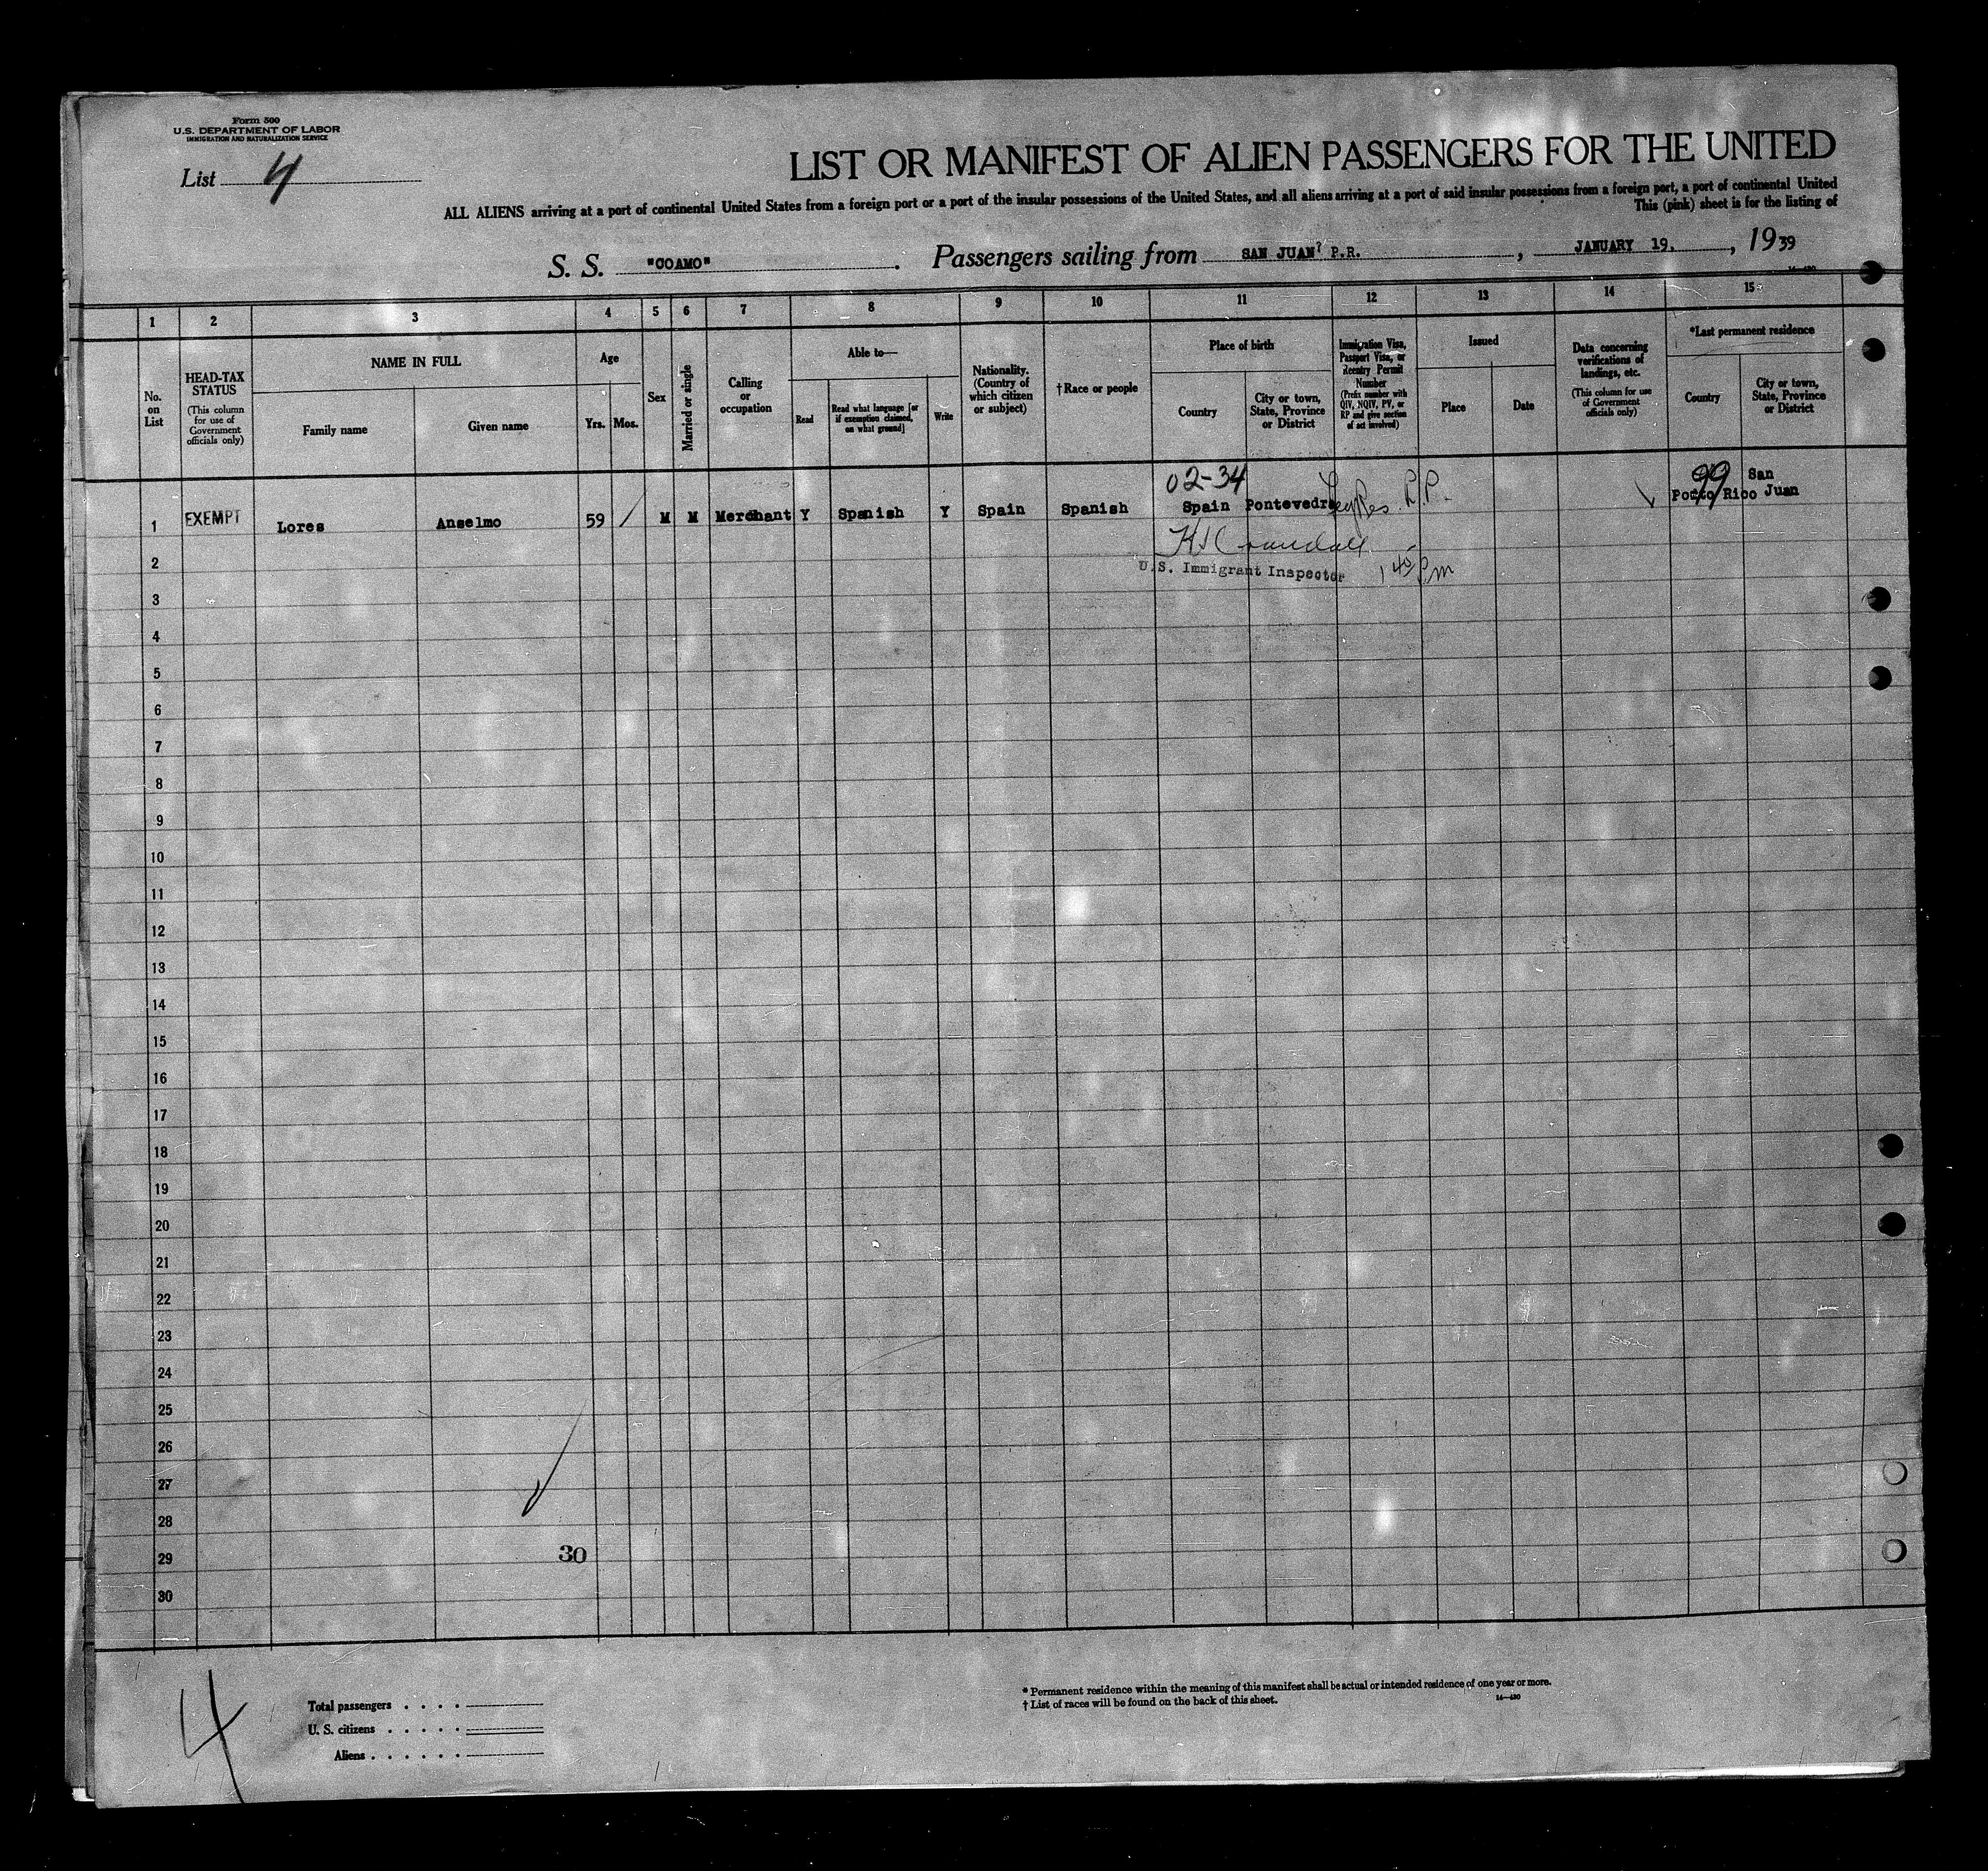 Form 500
U.S. DEPARTMENT OF LABOR
IMMIGRATION AND NATURALIZATION SERVICE
List 4
LIST OR MANIFEST OF ALIEN PASSENGERS FOR THE UNITED
ALL ALIENS arriving at a port of continental United States from a foreign port or a port of the insular possessions of the United States, and all aliens arriving at a port of said insular possessions from a foreign port, a port of continental United
This (pink) sheet is for the listing of
S. S. "COAMO". Passengers sailing from SAN JUAN? P.R., JANUARY 19, 1939
1 2 3 4 5 6 7 8 9 10 11 12 13 14 15
No. on List
HEAD-TAX STATUS
(This column for use of Government officials only)
NAME IN FULL
Family name
Given name
Age
Yrs. Mos.
Sex
Married or single
Calling or occupation
Able to—
Read
Read what language [or if exemption claimed, on what ground]
Write
Nationality. (Country of which citizen or subject)
†Race or people
Place of birth
Country
City or town, State, Province or District
Immigration Visa, Passport Visa, or Reentry Permit Number
(Prefix number with QIV, NQIV, PV, or RP and give section of act involved)
Issued
Place
Date
Data concerning verifications of landings, etc.
(This column for use of Government officials only)
*Last permanent residence
Country
City or town, State, Province or District
02-34
99
1 EXEMPT Lores Anselmo 59 M M Merchant Y Spanish Y Spain Spanish Spain Pontevedra R.P. Porto Rico San Juan
U.S. Immigrant Inspector 1 40 PM
2
3
4
5
6
7
8
9
10
11
12
13
14
15
16
17
18
19
20
21
22
23
24
25
26
27
28
29
30
30
4
Total passengers . . . .
U. S. citizens . . . . .
Aliens . . . . . .
* Permanent residence within the meaning of this manifest shall be actual or intended residence of one year or more.
† List of races will be found on the back of this sheet.
14—430